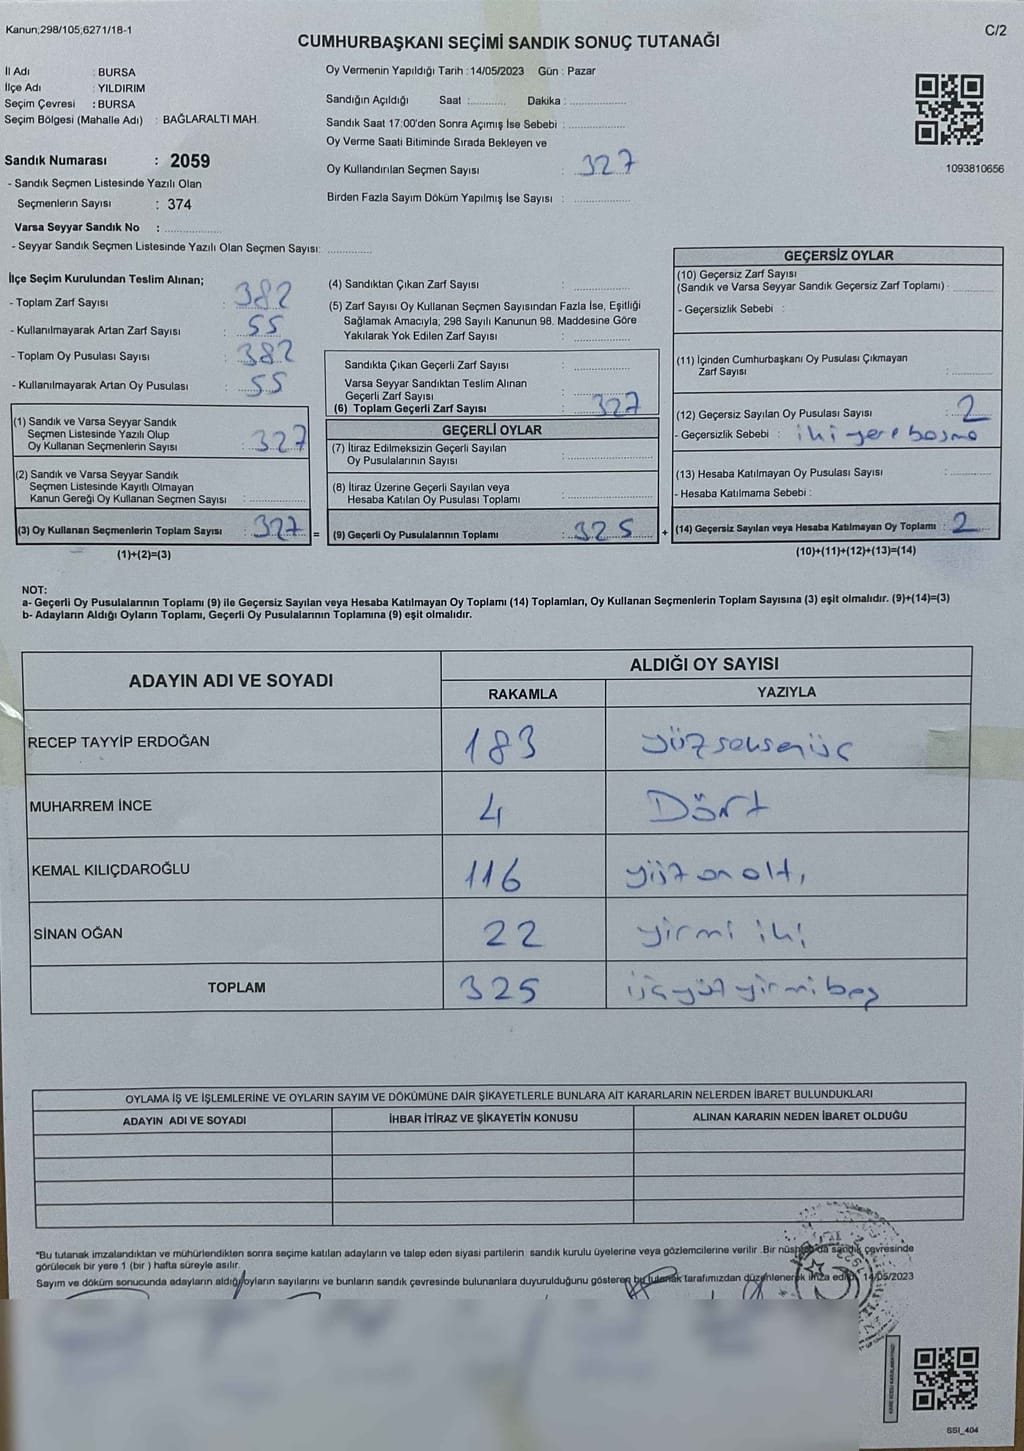 Kanun;298/105;6271/18-1
C/2
CUMHURBAŞKANI SEÇİMİ SANDIK SONUÇ TUTANAĞI
İl Adı : BURSA
İlçe Adı : YILDIRIM
Seçim Çevresi : BURSA
Seçim Bölgesi (Mahalle Adı) : BAĞLARALTI MAH.
Sandık Numarası : 2059
- Sandık Seçmen Listesinde Yazılı Olan
Seçmenlerin Sayısı : 374
Varsa Seyyar Sandık No :
- Seyyar Sandık Seçmen Listesinde Yazılı Olan Seçmen Sayısı:
Oy Vermenin Yapıldığı Tarih : 14/05/2023 Gün : Pazar
Sandığın Açıldığı Saat : Dakika :
Sandık Saat 17:00'den Sonra Açımış İse Sebebi :
Oy Verme Saati Bitiminde Sırada Bekleyen ve
Oy Kullandırılan Seçmen Sayısı : 327
Birden Fazla Sayım Döküm Yapılmış İse Sayısı :
1093810656
İlçe Seçim Kurulundan Teslim Alınan;
- Toplam Zarf Sayısı : 382
- Kullanılmayarak Artan Zarf Sayısı : 55
- Toplam Oy Pusulası Sayısı : 382
- Kullanılmayarak Artan Oy Pusulası : 55
(1) Sandık ve Varsa Seyyar Sandık
Seçmen Listesinde Yazılı Olup
Oy Kullanan Seçmenlerin Sayısı : 327
(2) Sandık ve Varsa Seyyar Sandık
Seçmen Listesinde Kayıtlı Olmayan
Kanun Gereği Oy Kullanan Seçmen Sayısı :
(3) Oy Kullanan Seçmenlerin Toplam Sayısı : 327 =
(1)+(2)=(3)
(4) Sandıktan Çıkan Zarf Sayısı :
(5) Zarf Sayısı Oy Kullanan Seçmen Sayısından Fazla İse, Eşitliği
Sağlamak Amacıyla, 298 Sayılı Kanunun 98. Maddesine Göre
Yakılarak Yok Edilen Zarf Sayısı :
Sandıkta Çıkan Geçerli Zarf Sayısı :
Varsa Seyyar Sandıktan Teslim Alınan
Geçerli Zarf Sayısı :
(6) Toplam Geçerli Zarf Sayısı : 327
GEÇERLİ OYLAR
(7) İtiraz Edilmeksizin Geçerli Sayılan
Oy Pusulalarının Sayısı :
(8) İtiraz Üzerine Geçerli Sayılan veya
Hesaba Katılan Oy Pusulası Toplamı :
(9) Geçerli Oy Pusulalarının Toplamı : 325 +
GEÇERSİZ OYLAR
(10) Geçersiz Zarf Sayısı
(Sandık ve Varsa Seyyar Sandık Geçersiz Zarf Toplamı) :
- Geçersizlik Sebebi :
(11) İçinden Cumhurbaşkanı Oy Pusulası Çıkmayan
Zarf Sayısı :
(12) Geçersiz Sayılan Oy Pusulası Sayısı : 2
- Geçersizlik Sebebi : iki yere basma
(13) Hesaba Katılmayan Oy Pusulası Sayısı :
- Hesaba Katılmama Sebebi :
(14) Geçersiz Sayılan veya Hesaba Katılmayan Oy Toplamı : 2
(10)+(11)+(12)+(13)=(14)
NOT:
a- Geçerli Oy Pusulalarının Toplamı (9) ile Geçersiz Sayılan veya Hesaba Katılmayan Oy Toplamı (14) Toplamları, Oy Kullanan Seçmenlerin Toplam Sayısına (3) eşit olmalıdır. (9)+(14)=(3)
b- Adayların Aldığı Oyların Toplamı, Geçerli Oy Pusulalarının Toplamına (9) eşit olmalıdır.
ADAYIN ADI VE SOYADI
ALDIĞI OY SAYISI
RAKAMLA YAZIYLA
RECEP TAYYİP ERDOĞAN 183 yüzseksenüç
MUHARREM İNCE 4 Dört
KEMAL KILIÇDAROĞLU 116 yüz on altı
SİNAN OĞAN 22 yirmi iki
TOPLAM 325 üçyüz yirmibeş
OYLAMA İŞ VE İŞLEMLERİNE VE OYLARIN SAYIM VE DÖKÜMÜNE DAİR ŞİKAYETLERLE BUNLARA AİT KARARLARIN NELERDEN İBARET BULUNDUKLARI
ADAYIN ADI VE SOYADI İHBAR İTİRAZ VE ŞİKAYETİN KONUSU ALINAN KARARIN NEDEN İBARET OLDUĞU
*Bu tutanak imzalandıktan ve mühürlendikten sonra seçime katılan adayların ve talep eden siyasi partilerin sandık kurulu üyelerine veya gözlemcilerine verilir .Bir nüshası da sandık çevresinde
görülecek bir yere 1 (bir ) hafta süreyle asılır.
Sayım ve döküm sonucunda adayların aldığı oyların sayılarını ve bunların sandık çevresinde bulunanlara duyurulduğunu gösteren bu tutanak tarafımızdan düzenlenerek imza edildi. 14/05/2023
SSI_404